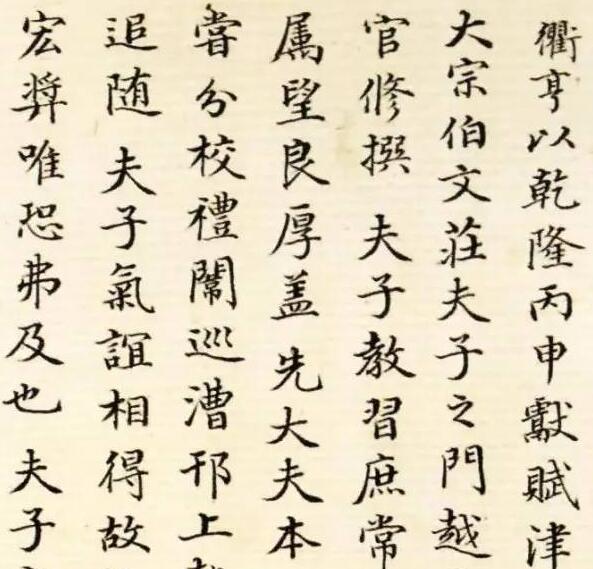 衢亨以乾隆丙申獻賦津
大宗伯文莊夫子之門越
官修撰夫子教習庶常
属望良厚盖先大夫本
嘗分校禮闈巡漕邗上
追随夫子氣誼相得故
宏奨唯恐弗及也夫子